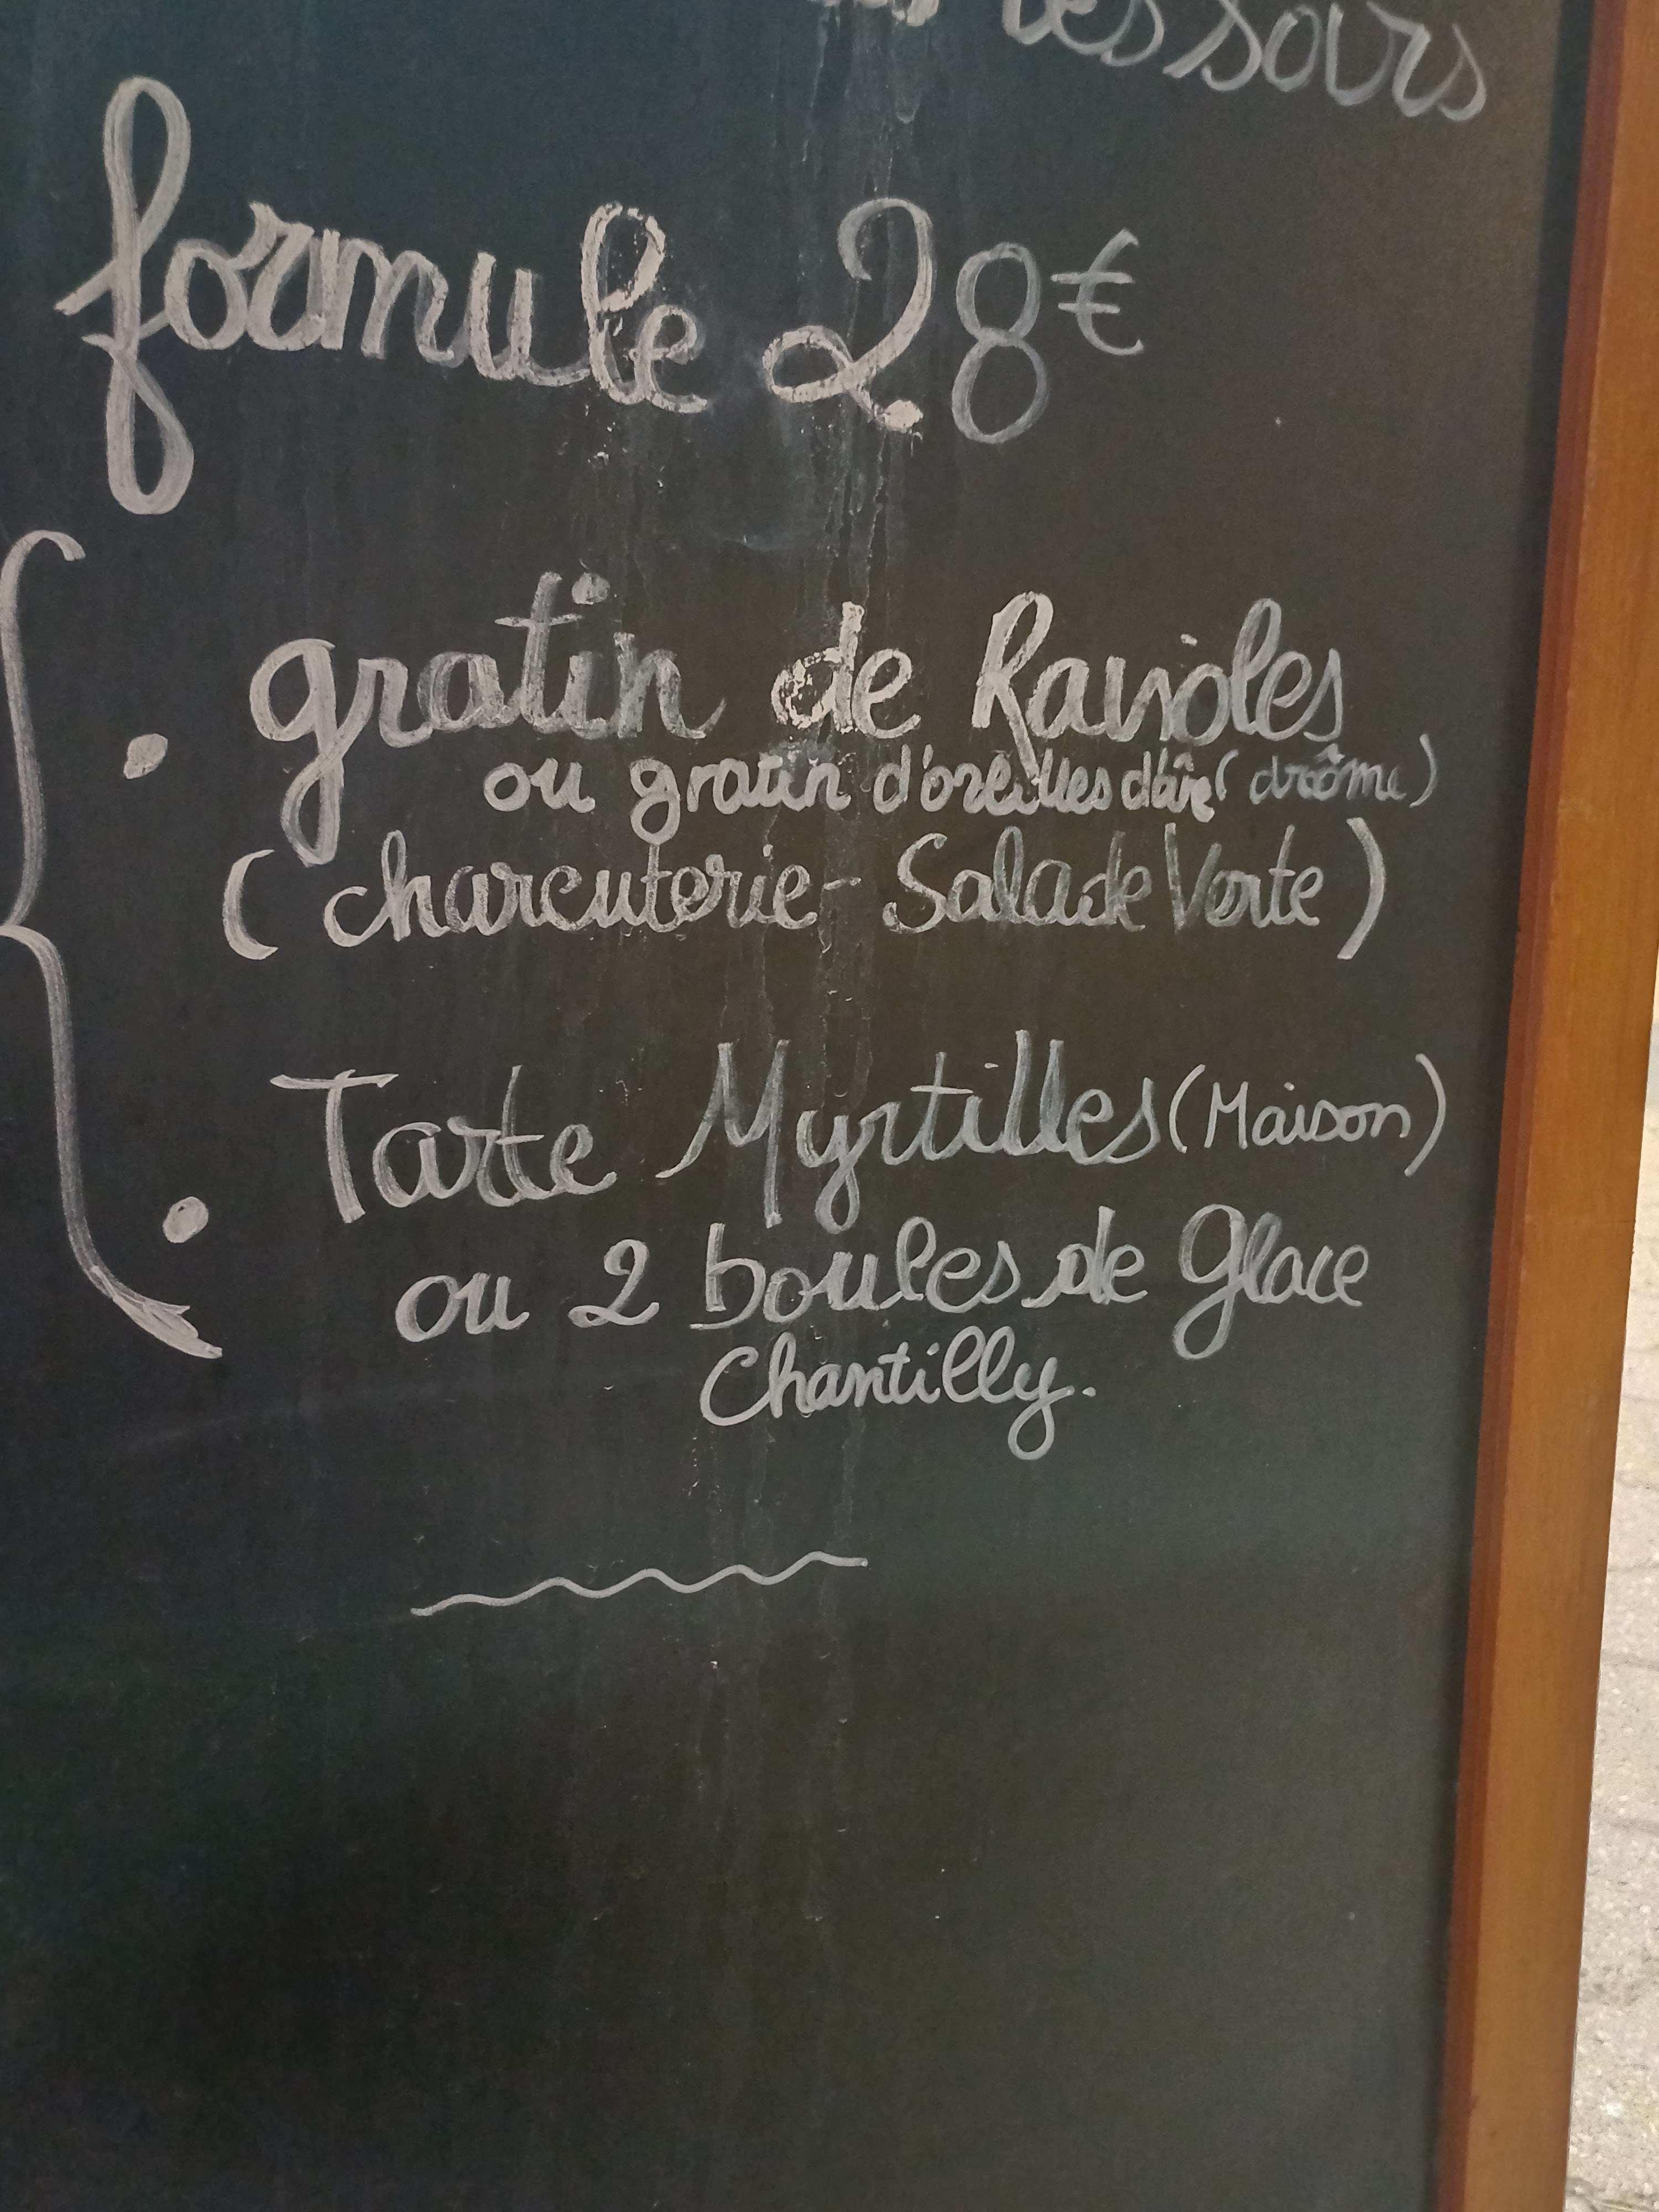 les soirs
formule 28€
• gratin de Ravioles
ou gratin d'oreilles d'âne (drôme)
(charcuterie - Salade Verte)
• Tarte Myrtilles (Maison)
ou 2 boules de Glace
Chantilly.